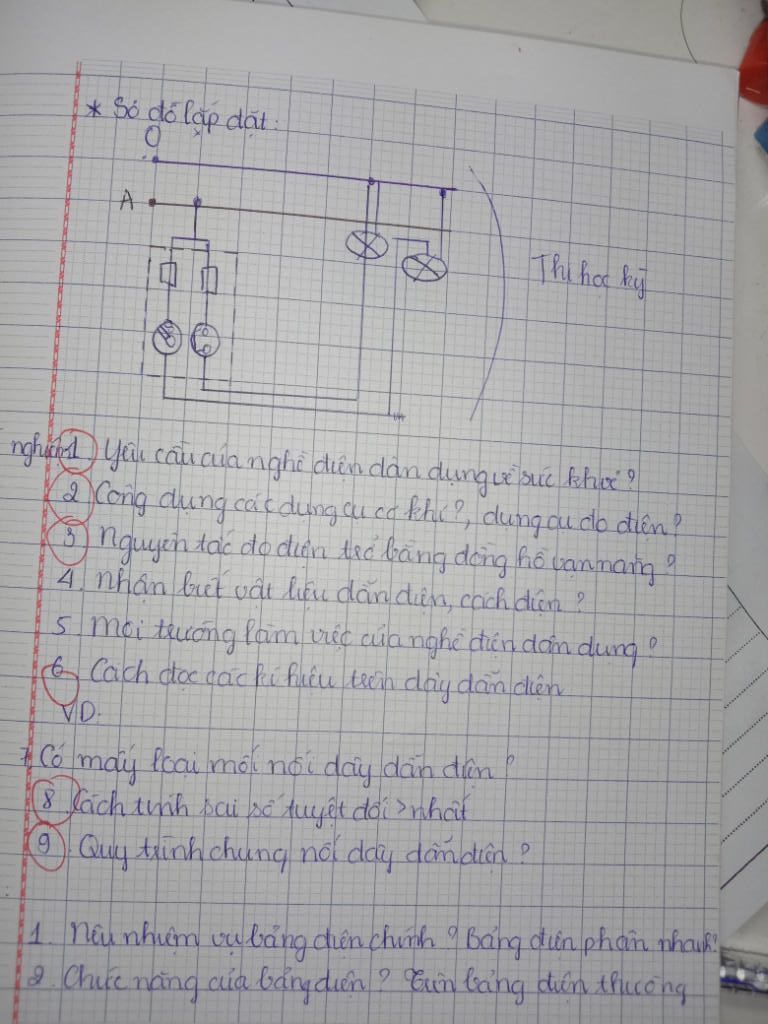 * Sơ đồ lắp đặt:
O
A
Thi học kỳ
1 Yêu cầu của nghề điện dân dụng về sức khỏe?
2 Công dụng các dụng cụ cơ khí?, dụng cụ đo điện?
3 Nguyên tắc đo điện trở bằng đồng hồ vạn năng?
4. Nhận biết vật liệu dẫn điện, cách điện?
5. Môi trường làm việc của nghề điện dân dụng?
6 Cách đọc các kí hiệu trên dây dẫn điện
VD.
7 Có mấy loại mối nối dây dẫn điện?
8 Cách tính sai số tuyệt đối > nhất
9 Quy trình chung nối dây dẫn điện?
1. Nêu nhiệm vụ bảng điện chính? Bảng điện phân nhánh?
2. Chức năng của bảng điện? Trên bảng điện thường